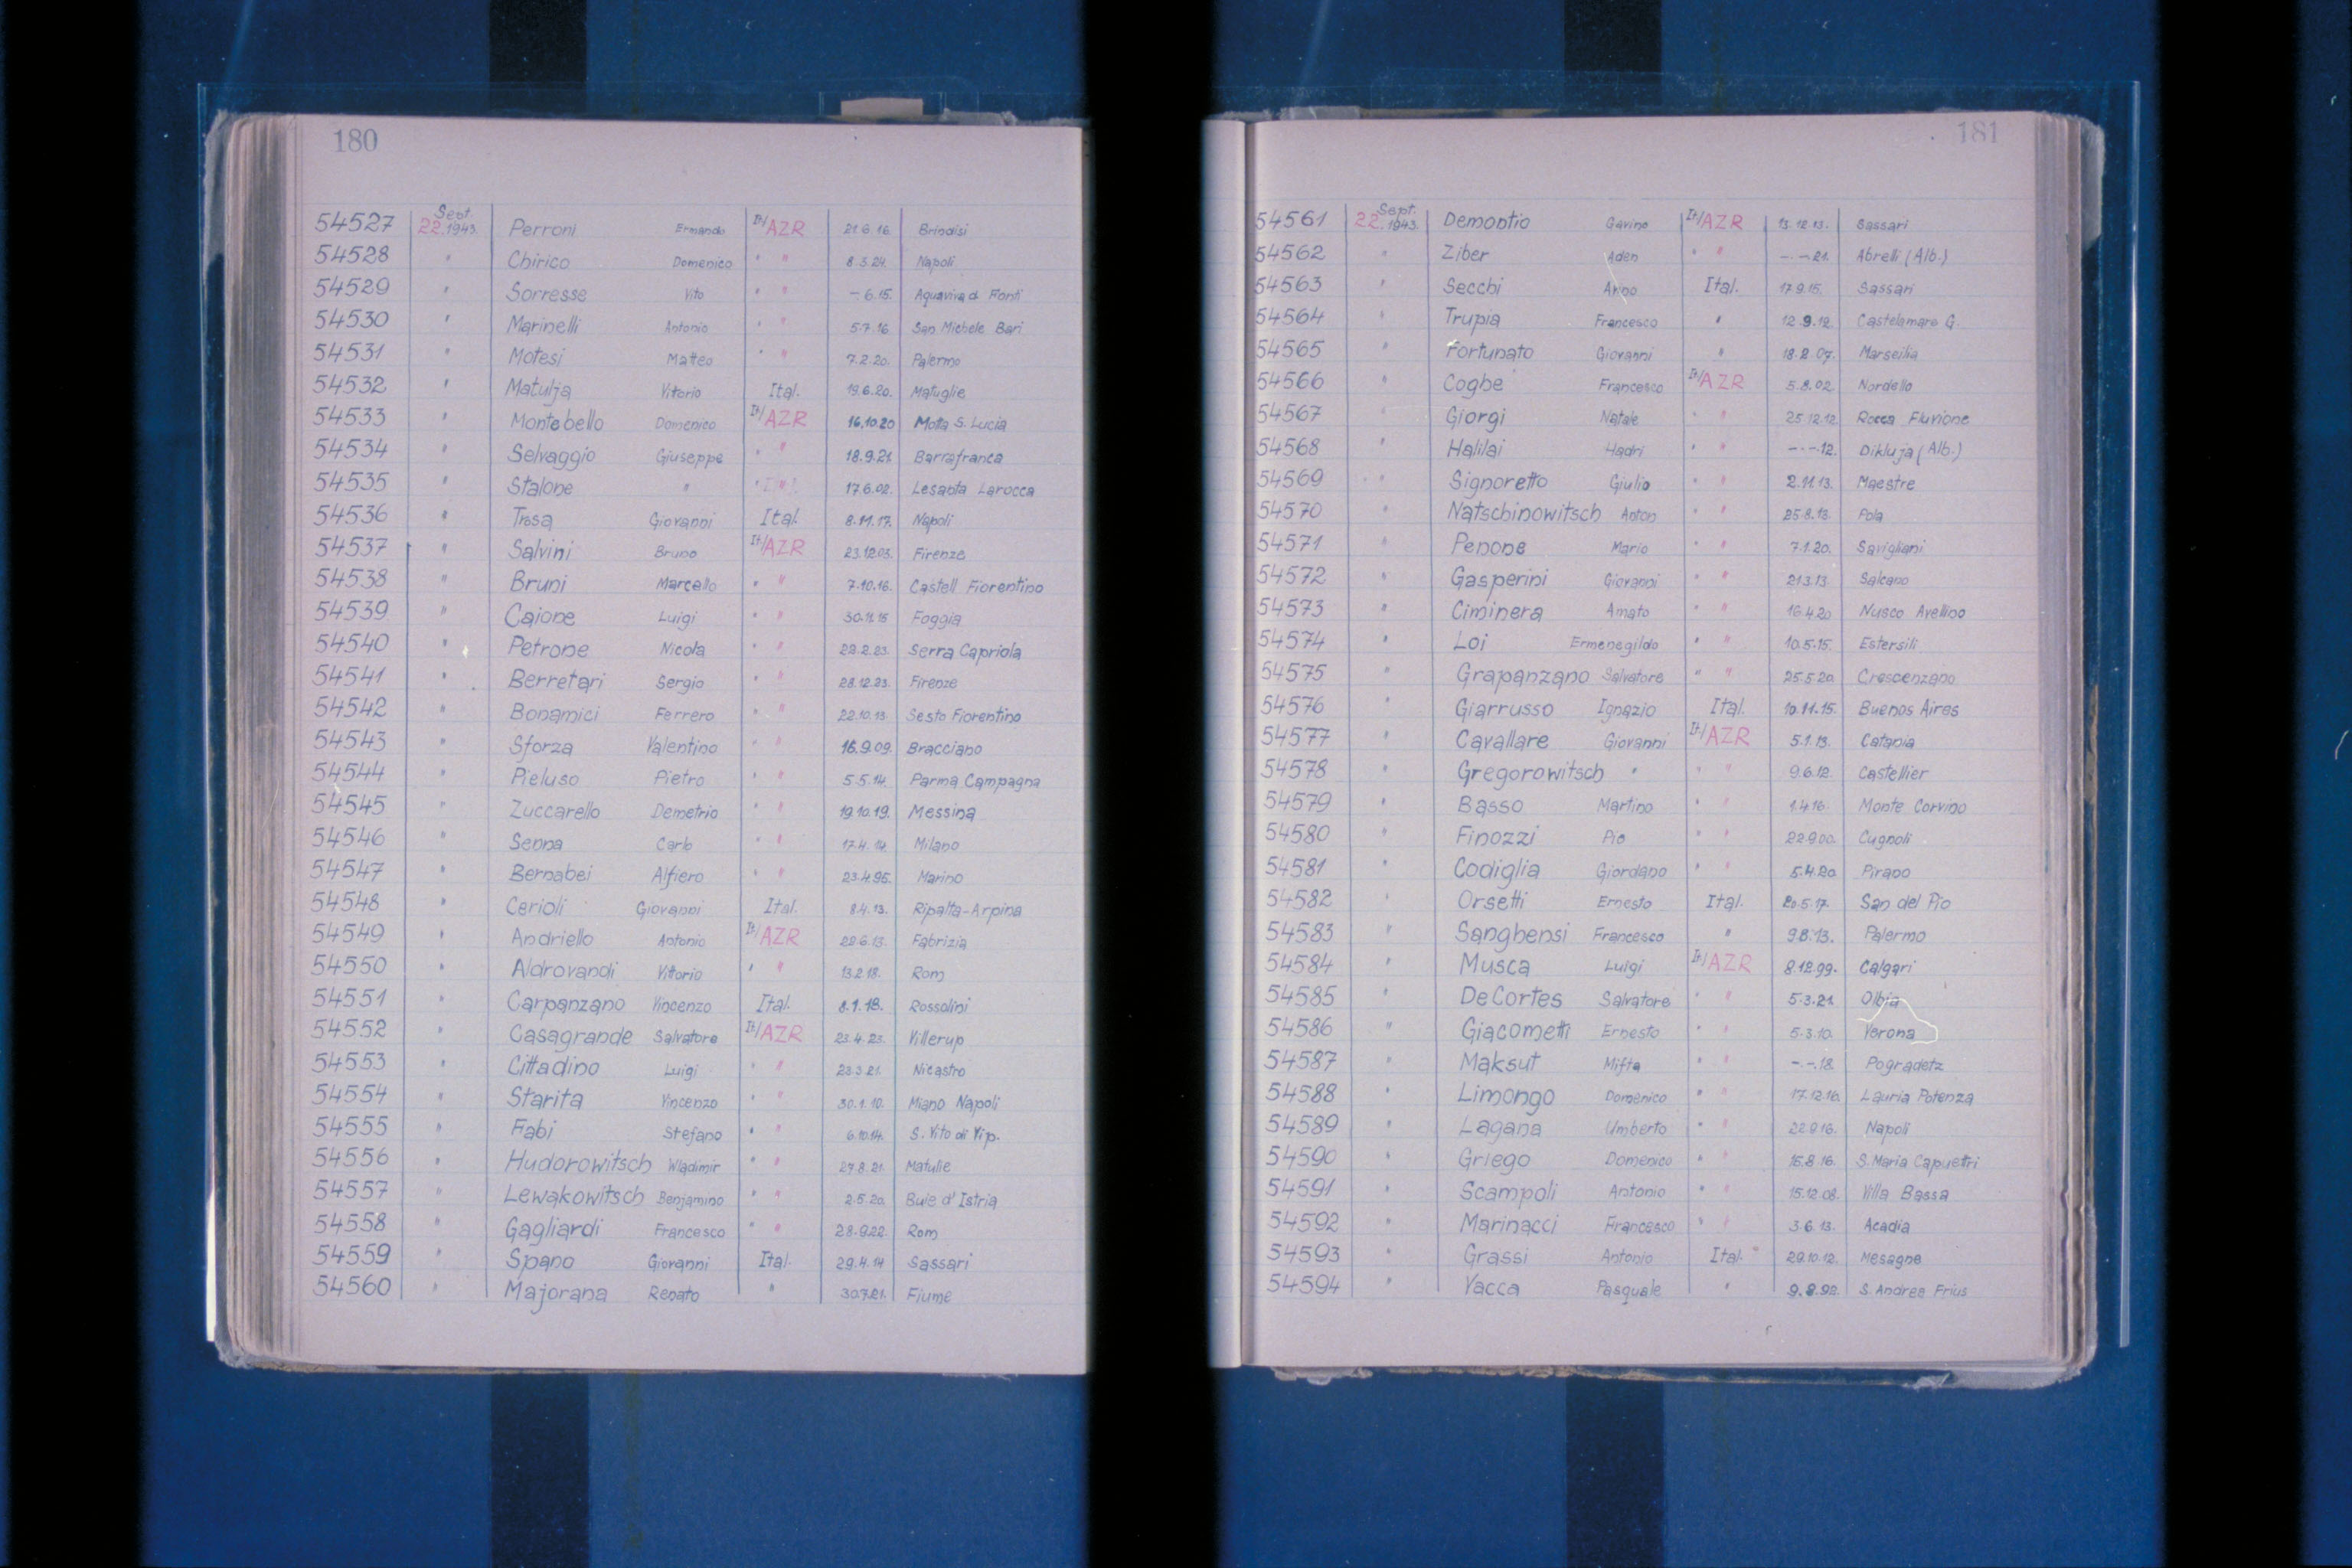 180
54527 Sept. 22. 1943. Perroni Ermando It/AZR 21.6.16. Brindisi
54528 " Chirico Domenico " " 8.3.24. Napoli
54529 " Sorresse Vito " " – 6.15. Aquaviva d. Fonti
54530 " Marinelli Antonio " " 5.7.16. San Michele Bari
54531 " Motesi Matteo " " 7.2.20. Palermo
54532 " Matulja Vitorio Ital. 19.6.20. Matuglie
54533 " Montebello Domenico It/AZR 16.10.20 Motta S. Lucia
54534 " Selvaggio Giuseppe " " 18.9.21. Barrafranca
54535 " Stalone " " " 17.6.02. Lesanta Larocca
54536 " Trosa Giovanni Ital. 8.11.17. Napoli
54537 " Salvini Bruno It/AZR 23.12.03. Firenze
54538 " Bruni Marcello " " 7.10.16. Castell Fiorentino
54539 " Caione Luigi " " 30.11.15 Foggia
54540 " Petrone Nicola " " 22.2.23. Serra Capriola
54541 " Berretari Sergio " " 28.12.23. Firenze
54542 " Bonamici Ferrero " " 22.10.13. Sesto Fiorentino
54543 " Sforza Valentino " " 16.9.09. Bracciano
54544 " Pieluso Pietro " " 5.5.14. Parma Campagna
54545 " Zuccarello Demetrio " " 19.10.19. Messina
54546 " Senna Carlo " " 17.4.14. Milano
54547 " Bernabei Alfiero " " 23.4.95. Marino
54548 " Cerioli Giovanni Ital. 8.4.13. Ripalta-Arpina
54549 " Andriello Antonio It/AZR 22.6.13. Fabrizia
54550 " Aldrovandi Vitorio " " 13.2.18. Rom
54551 " Carpanzano Vincenzo Ital. 8.1.18. Rossolini
54552 " Casagrande Salvatore It/AZR 23.4.23. Villerup
54553 " Cittadino Luigi " " 23.3.21. Nicastro
54554 " Starita Vincenzo " " 30.1.10. Miano Napoli
54555 " Fabi Stefano " " 6.10.14. S. Vito di Vip.
54556 " Hudorowitsch Wladimir " " 27.8.21. Matulie
54557 " Lewakowitsch Benjamino " " 2.5.20. Buie d'Istria
54558 " Gagliardi Francesco " " 28.9.22. Rom
54559 " Spano Giovanni Ital. 29.4.14 Sassari
54560 " Majorana Renato " 30.7.21. Fiume
181
54561 Sept. 22. 1943. Demontio Gavino It/AZR 13.12.13. Sassari
54562 " Ziber Aden " " –.–21. Abrelli (Alb.)
54563 " Secchi Anno Ital. 17.9.15. Sassari
54564 " Trupia Francesco " 12.9.12. Castelamare G.
54565 " Fortunato Giovanni " 18.2.07. Marseilia
54566 " Coghe Francesco It/AZR 5.8.02. Nordello
54567 " Giorgi Natale " " 25.12.12. Rocca Fluvione
54568 " Halilai Hadri " " –.–.12. Dikluja (Alb.)
54569 " Signoretto Giulio " " 2.11.13. Maestre
54570 " Natschinowitsch Anton " " 25.8.13. Pola
54571 " Penone Mario " " 7.1.20. Savigliani
54572 " Gasperini Giovanni " " 21.3.13. Salcano
54573 " Ciminera Amato " " 16.4.20 Nusco Avellino
54574 " Loi Ermenegildo " " 10.5.15. Estersili
54575 " Grapanzano Salvatore " " 25.5.20. Crescenzano
54576 " Giarrusso Ignazio Ital. 10.11.15. Buenos Aires
54577 " Cavallare Giovanni It/AZR 5.1.13. Catania
54578 " Gregorowitsch " " " 9.6.12. Castellier
54579 " Basso Martino " " 1.4.16. Monte Corvino
54580 " Finozzi Pio " " 22.9.00. Cugnoli
54581 " Codiglia Giordano " " 5.4.20. Pirano
54582 " Orsetti Ernesto Ital. 20.5.17. San del Pio
54583 " Sanghensi Francesco " 9.8.13. Palermo
54584 " Musca Luigi It/AZR 8.12.99. Calgari
54585 " DeCortes Salvatore " " 5.3.21. Olbia
54586 " Giacometti Ernesto " " 5.3.10. Verona
54587 " Maksut Mifta " " –.–.18. Pogradetz
54588 " Limongo Domenico " " 17.12.16. Lauria Potenza
54589 " Lagana Umberto " " 22.9.16. Napoli
54590 " Griego Domenico " " 15.8.16. S. Maria Capuetri
54591 " Scampoli Antonio " " 15.12.08. Villa Bassa
54592 " Marinacci Francesco " " 3.6.13. Acadia
54593 " Grassi Antonio Ital. " 29.10.12. Mesagne
54594 " Vacca Pasquale " 9.8.92. S. Andrea Frius